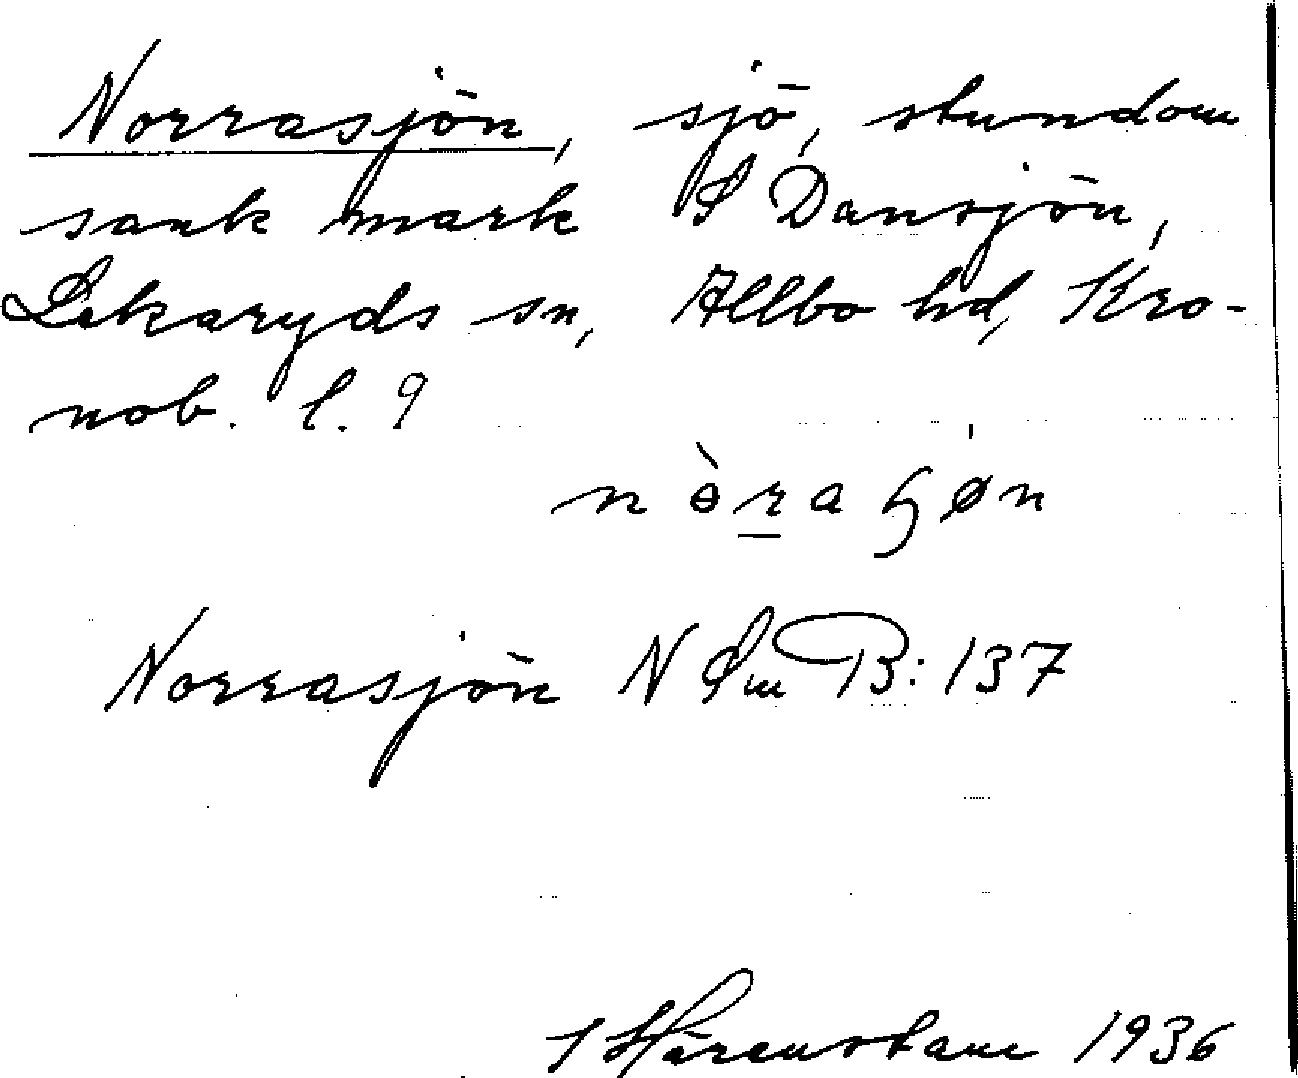 Norrasjön, sjö, stundom
sank mark S Dansjön,
Lekaryds sn, Allbo hd, Kro-
nob. l. 9
nòra ɧøn
Norrasjön N Sm B: 137
1936